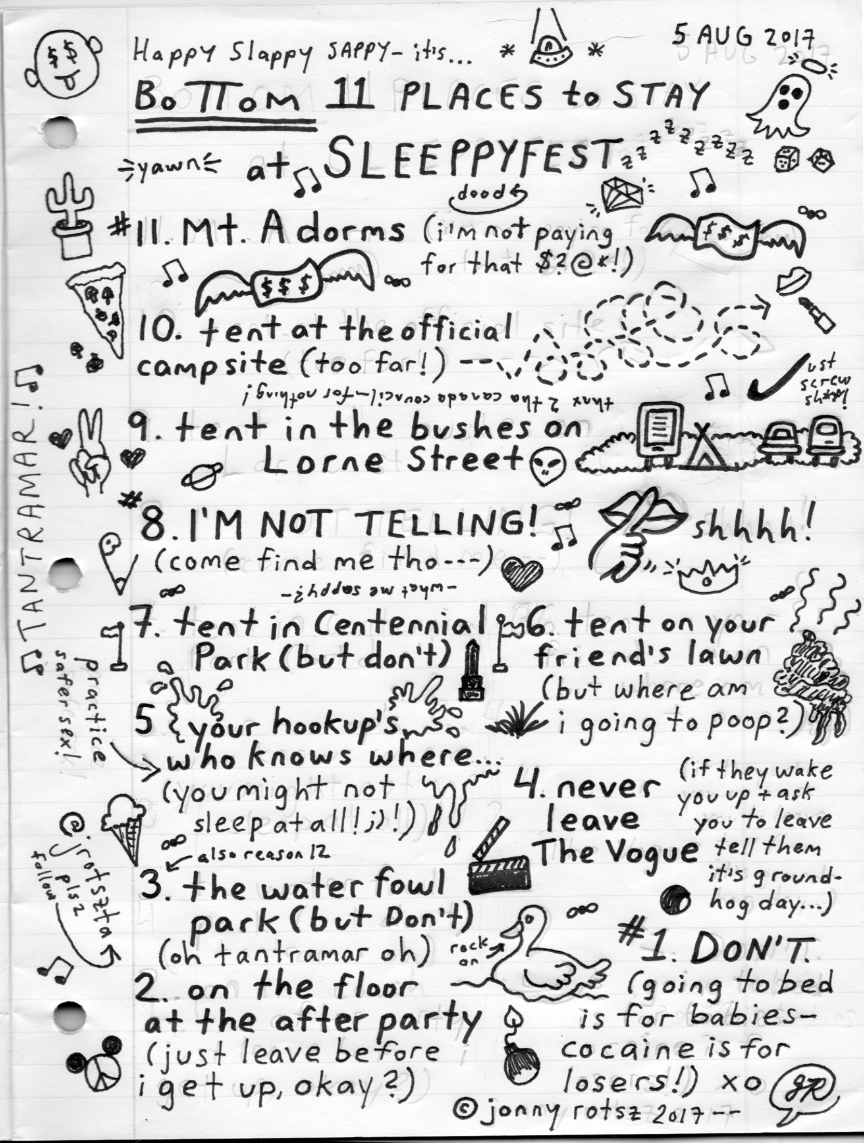 5 AUG 2017
Happy Slappy SAPPY- it's...
* *
BOTTOM 11 PLACES to STAY
yawn at SLEEPPYFEST zzzzzzzzzz
dood
#11. Mt. A dorms (i'm not paying
for that $?@*!)
$$$
$$$
10. tent at the official
campsite (too far!)
thnx 2 tha canada council-for nothing!
just
screw
sh*t!
9. tent in the bushes on
Lorne Street
TANTRAMAR!
#8. I'M NOT TELLING!
(come find me tho---)
shhhh!
-what-me sappy?-
7. tent in Centennial
Park (but don't)
6. tent on your
friend's lawn
(but where am
i going to poop?)
practice
safer sex!
5 your hookup's,
who knows where...
(you might not
sleep at all! ;) !)
4. never
leave
The Vogue
(if they wake
you up + ask
you to leave
tell them
it's ground-
hog day...)
also reason 12
3. the water fowl
park (but Don't)
(oh tantramar oh)
rock
on
@jrotszta
pls2
follow
2. on the floor
at the after party
(just leave before
i get up, okay?)
#1. DON'T.
(going to bed
is for babies-
cocaine is for
losers!) xo JR
© jonny rotsz 2017--